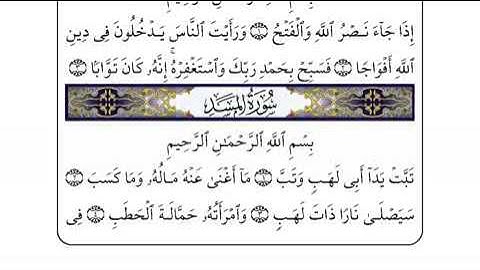 بِسْمِ ٱللَّهِ ٱلرَّحْمَٰنِ ٱلرَّحِيمِ
إِذَا جَآءَ نَصْرُ ٱللَّهِ وَٱلْفَتْحُ ۝١ وَرَأَيْتَ ٱلنَّاسَ يَدْخُلُونَ فِى دِينِ
ٱللَّهِ أَفْوَاجًا ۝٢ فَسَبِّحْ بِحَمْدِ رَبِّكَ وَٱسْتَغْفِرْهُ ۚ إِنَّهُۥ كَانَ تَوَّابًۢا ۝٣
سُورَةُ المَسَدِ
بِسْمِ ٱللَّهِ ٱلرَّحْمَٰنِ ٱلرَّحِيمِ
تَبَّتْ يَدَآ أَبِى لَهَبٍ وَتَبَّ ۝١ مَآ أَغْنَىٰ عَنْهُ مَالُهُۥ وَمَا كَسَبَ ۝٢
سَيَصْلَىٰ نَارًا ذَاتَ لَهَبٍ ۝٣ وَٱمْرَأَتُهُۥ حَمَّالَةَ ٱلْحَطَبِ ۝٤ فِى